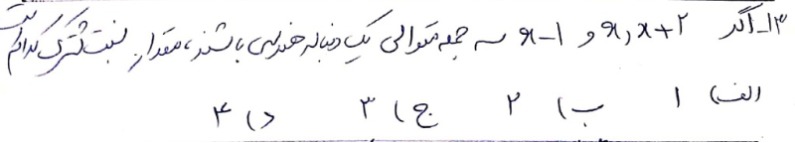 ۱۳- اگر x+۲ و x و x-۱ سه جمله متوالی یک دنباله هندسی باشند، مقدار نسبت مشترک کدام است
الف) ۱ ب) ۲ ج) ۳ د) ۴